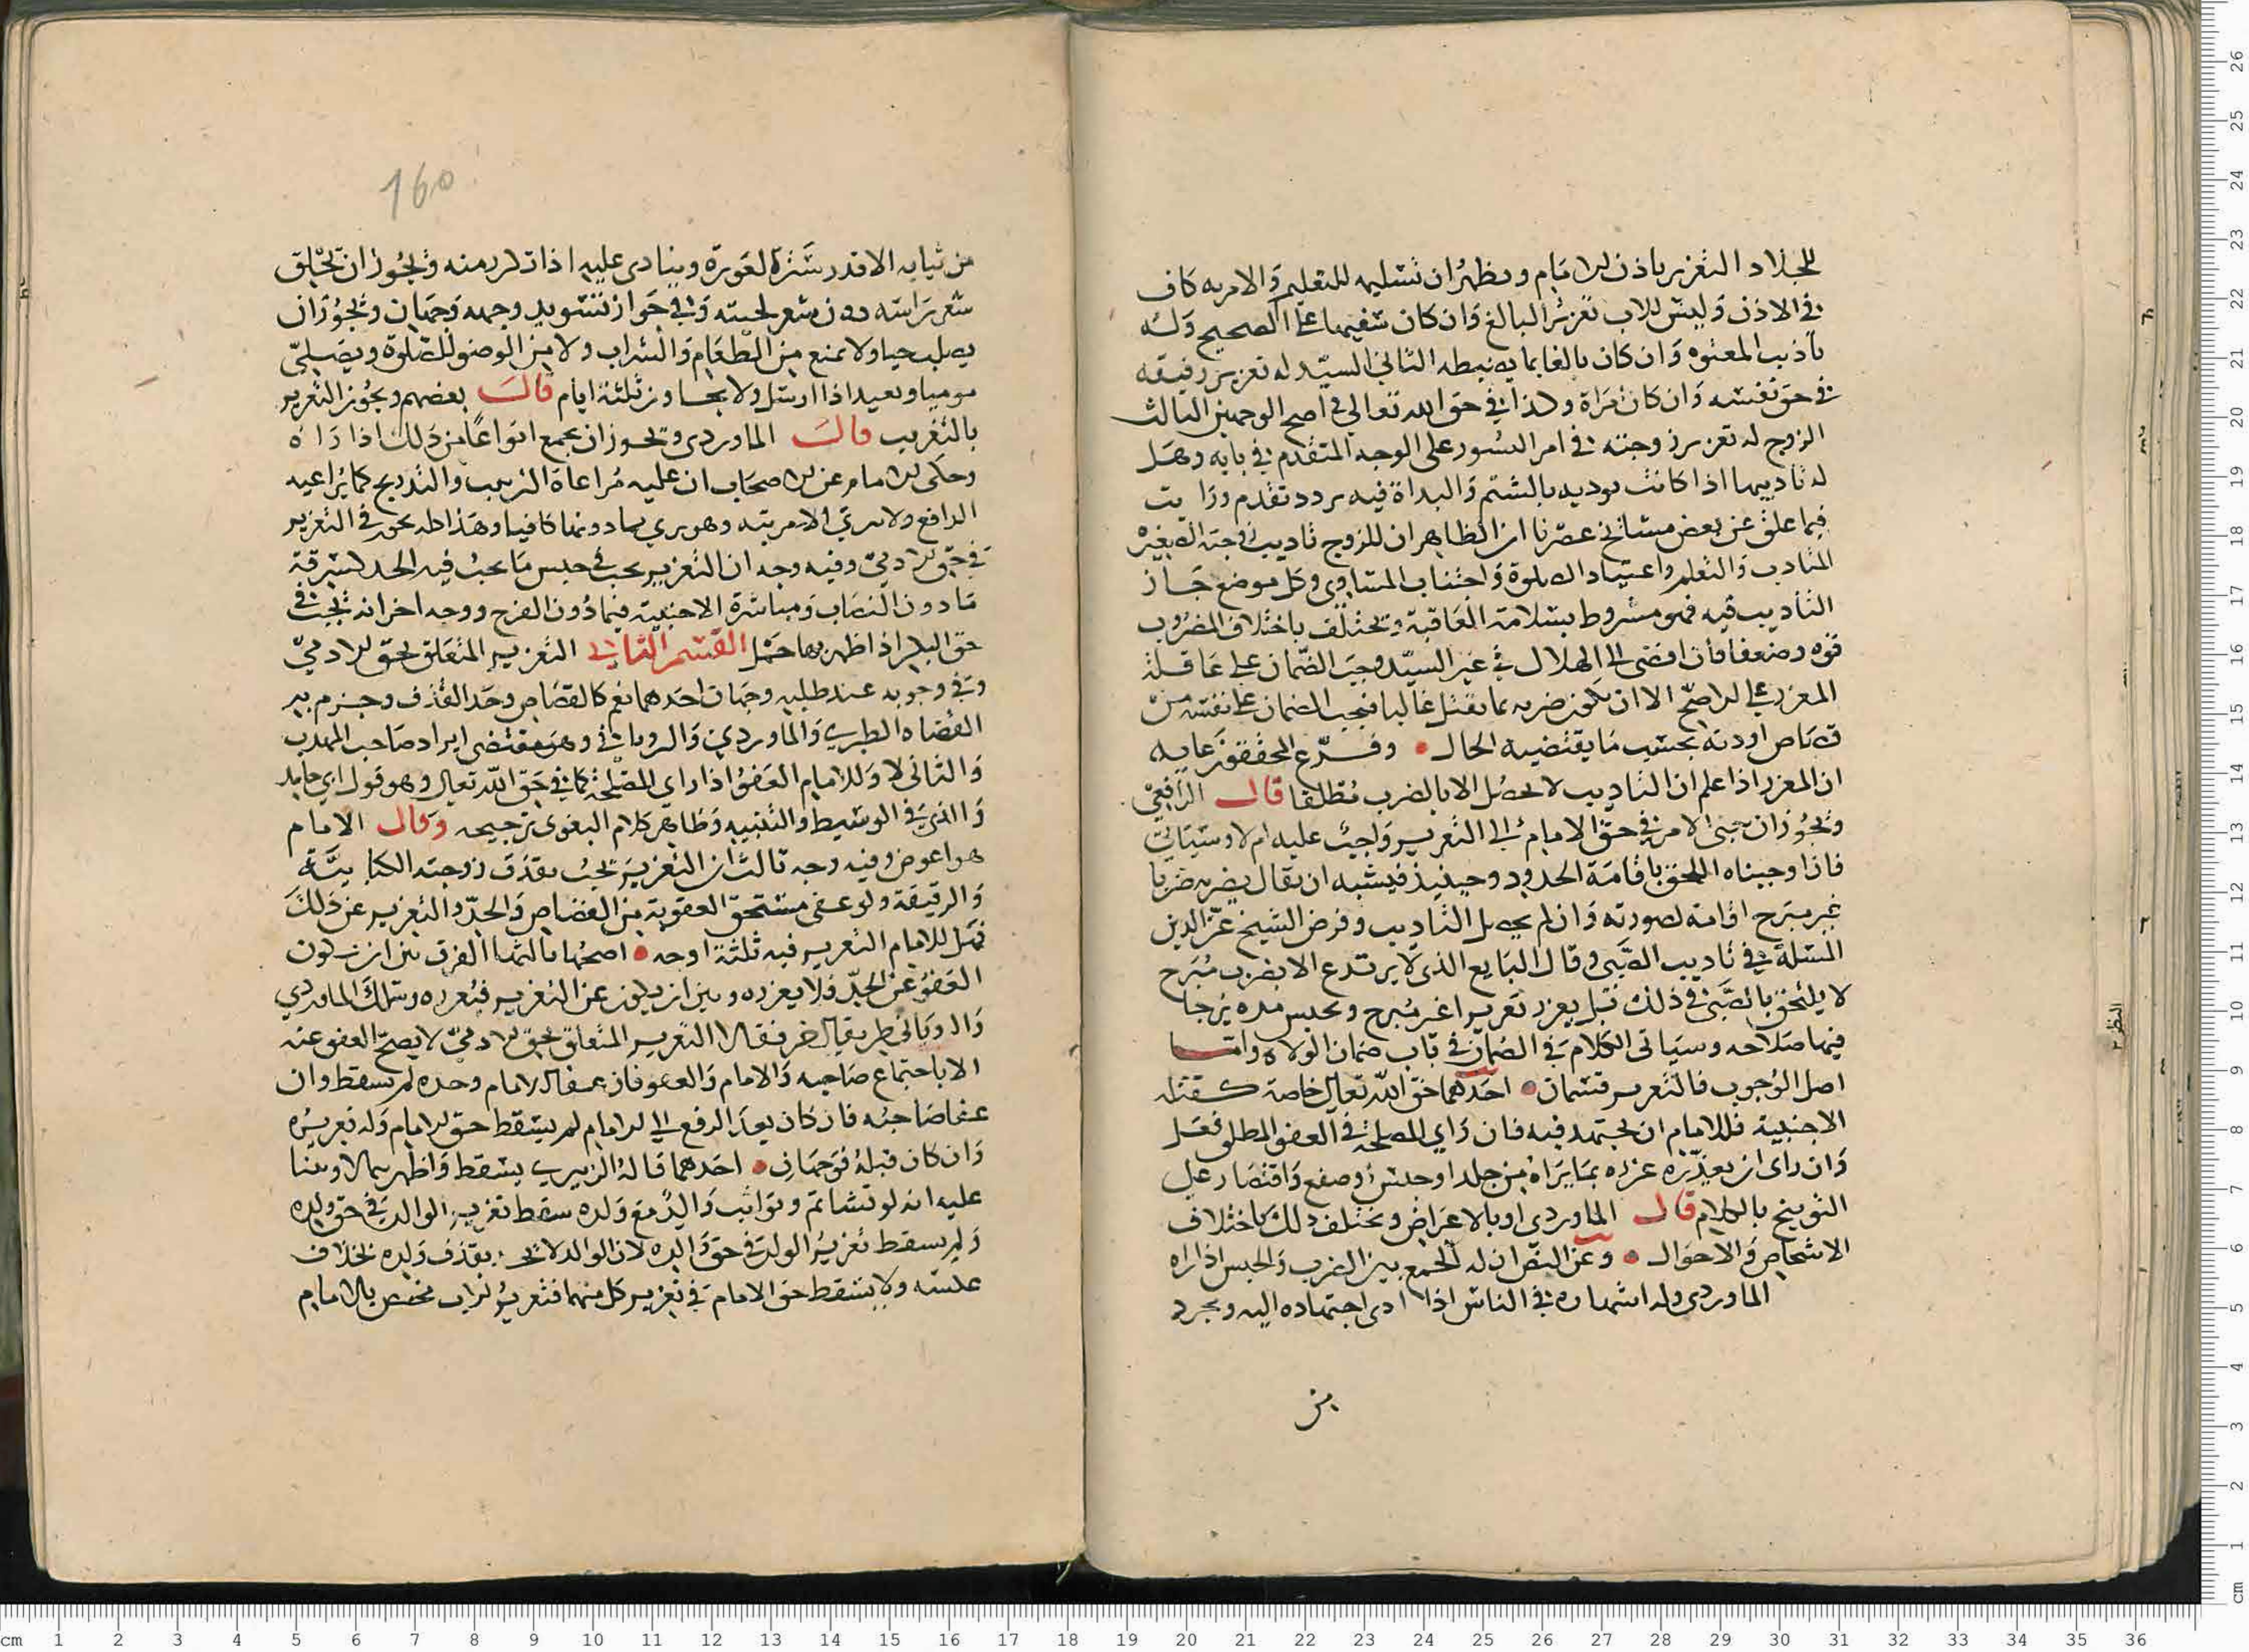 للجلاد التعزير باذن الامام ويظهر ان تسليمه للتعليم والامر به كاف
في الاذن وليس للاب تعزير البالغ وان كان سفيها على الصحيح وله
تاديب المعتوه وان كان بالغا بما يضبطه الثاني السيد له تعزير رقيقه
في حق نفسه وان كان امراة وكذا في حق الله تعالى في اصح الوجهين الثالث
الزوج له تعزير زوجته في امر النشوز على الوجه المتقدم في بابه وهل
له تاديبها اذا كانت توذيه بالشتم والبذاة فيه تردد تقدم ورايت
فيما علق عن بعض مشائخ عصرنا ان الظاهر ان للزوج تاديب زوجته الصغيرة
للتاديب والتعلم واعتياد الصلوة واجتناب المساوي وكل موضع جاز
التاديب فيه فهو مشروط بسلامة العاقبة ويختلف باختلاف المضروب
قوه وضعفا فان افضى الى الهلاك في غير السيد وجب الضمان على عاقلة
المعزر على الاصح الا ان تكون ضربه بما يقتل غالبا فيجب الضمان على نفسه من
قصاص او دية بحسب ما يقتضيه الحال وفرع المحققون عليه
ان المعزر اذا علم ان التاديب لا يحصل الا بالضرب مطلقا قال الرافعي
ويجوز ان يبنى الامر في حق الامام الى التعزير واجب عليه ام لا وسياتي
فاذا اوجبناه التحق باقامة الحدود وحينيذ فيشبه ان يقال يضربه ضربا
غير مبرح اقامة لصورته وان لم يحصل التاديب وفرض الشيخ عز الدين
المسئلة في تاديب الصبي وقال البايع الذي لا يرتدع الا بضرب مبرح
لا يلتحق بالصبي في ذلك قبل يعزر تعزيرا غير مبرح ويحبس مده يرجا
فيها صلاحه وسياتي الكلام في الضمان في باب ضمان الولاه واما
اصل الوجوب فالتعزير قسمان احدهما حق الله تعالى خاصة كقبلة
الاجنبية فللامام ان يجتهد فيه فان راي المصلحة في العفو المطلق فعل
وان راى ان يعزره عزره بما يراه من جلد او حبس او صفع واقتصار على
التوبيخ بالكلام قال الماوردي او بالاعراض ويختلف ذلك باختلاف
الاشخاص والاحوال وعن النص ان له الجمع بين الضرب والحبس اذا راه
الماوردي وله اشهاره في الناس اذا ادى اجتهاده اليه ويجرد
من
160
من ثيابه الا قدر سترة العورة وينادى عليه اذا تكرر منه ويجوز ان تحلق
شعر راسه دون شعر لحيته وفي جواز تسويد وجهه وجهان ويجوز ان
يصلب حيا ولا يمنع من الطعام والشراب ولا من الوضو للصلوة ويصلي
موميا ويعيد اذا ارسل ولا يجاوز ثلثة ايام قال بعضهم ويجوز التعزير
بالتغريب قال الماوردي ويجوز ان يجمع انواعا من ذلك اذا راه
وحكى الامام عن الاصحاب ان عليه مراعاة الترتيب والتدريج كما يراعيه
الدافع ولا يرقي الا مرتبه وهو يري بما دونها كافيا وهذا كله يجوز في التعزير
في حق الادمي وفيه وجه ان التعزير يجب في جنس ما يجب فيه الحد كسرقة
ما دون النصاب ومباشرة الاجنبية فيما دون الفرج ووجه اخر انه يجب في
حق البكر اذا ظهر بها حمل القسم الثاني التعزير المتعلق بحق الادمي
وفي وجوبه عند طلبه وجهان احدهما نعم كالقصاص وحد القذف وجزم به
القضاه الطبري والماوردي والروياني وهو مقتضى ايراد صاحب المهذب
والثاني لا وللامام العفو اذا راى المصلحة كما في حق الله تعالى وهو قول ابي حامد
والذي في الوسيط والتنبيه وظاهر كلام البغوي ترجيحه وقال الامام
هو اعوض وفيه وجه ثالث ان التعزير يجب بقذف زوجته الكتابية
والرقيقة ولو عفى مستحق العقوبة من القصاص والحد والتعزير عن ذلك
فهل للامام التعزير فيه ثلثة اوجه اصحها ثالثها الفرق بين ان يكون
العفو عن الحد فلا يعزره وبين ان يكون عن التعزير فيعزره وسلك الماوردي
والروياني طريقا اخر فقالا التعزير المتعلق بحق الادمي لا يصح العفو عنه
الا باجتماع صاحبه والامام والعفو فان عفا الامام وحده لم يسقط وان
عفا صاحبه فان كان بعد الرفع الى الامام لم يسقط حق الامام وله تعزيره
وان كان قبله فوجهان احدهما قاله الزبيري يسقط واظهرهما لا وبنينا
عليه انه لو تشاتم وتواثب والد مع ولده سقط تعزير الوالد في حق ولده
ولم يسقط تعزير الولد في حق والده لان الوالد لا يحد بقذف ولده بخلاف
عكسه ولا يسقط حق الامام في تعزير كل منهما فتعزير الاب مختص بالامام